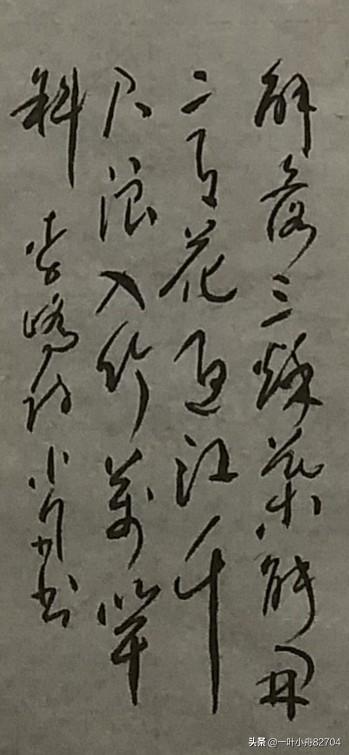 解落三秋葉能開
二月花过江千
尺浪入竹万竿
斜 李嶠诗小舟书
头条@一叶小舟82704